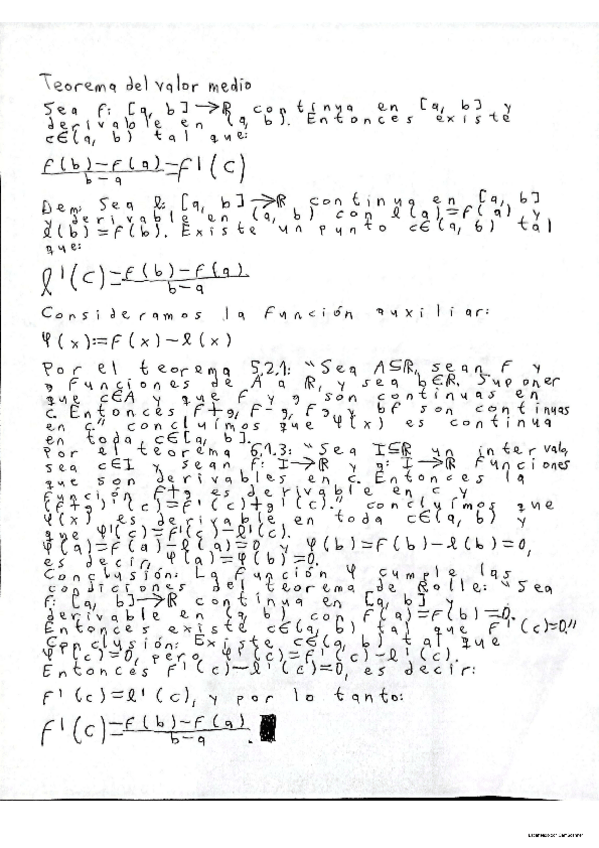 Teorema del valor medio
Sea f: [a, b]→ℝ continua en [a, b] y
derivable en (a, b). Entonces existe
c∈(a, b) tal que:
f(b)−f(a)/b−a=f'(c)
Dem: Sea ℓ: [a, b]→ℝ continua en [a, b]
y derivable en (a, b) con ℓ(a)=f(a) y
ℓ(b)=f(b). Existe un punto c∈(a, b) tal
que:
ℓ'(c)=f(b)−f(a)/b−a
Consideramos la función auxiliar:
φ(x):=f(x)−ℓ(x)
Por el teorema 5.2.1: "Sea A⊆ℝ, sean f y
g funciones de A a ℝ, y sea b∈ℝ. Suponer
que c∈A y que f y g son continuas en
c. Entonces f+g, f−g, fg y bf son continuas
en c" concluimos que φ(x) es continua
en toda c∈[a, b].
Por el teorema 6.1.3: "Sea I⊆ℝ un intervalo,
sea c∈I y sean f: I→ℝ y g: I→ℝ funciones
que son derivables en c. Entonces la
función f+g es derivable en c y
(f+g)'(c)=f'(c)+g'(c)." concluimos que
φ(x) es derivable en toda c∈(a, b) y
que φ'(c)=f'(c)−ℓ'(c).
φ(a)=f(a)−ℓ(a)=0 y φ(b)=f(b)−ℓ(b)=0,
es decir, φ(a)=φ(b)=0.
Conclusión: La función φ cumple las
condiciones del teorema de Rolle: "Sea
f: [a, b]→ℝ continua en [a, b] y
derivable en (a, b) con f(a)=f(b)=0.
Entonces existe c∈(a, b) tal que f'(c)=0."
Conclusión: Existe c∈(a, b) tal que
φ'(c)=0, pero φ'(c)=f'(c)−ℓ'(c).
Entonces f'(c)−ℓ'(c)=0, es decir:
f'(c)=ℓ'(c), y por lo tanto:
f'(c)=f(b)−f(a)/b−a. ■